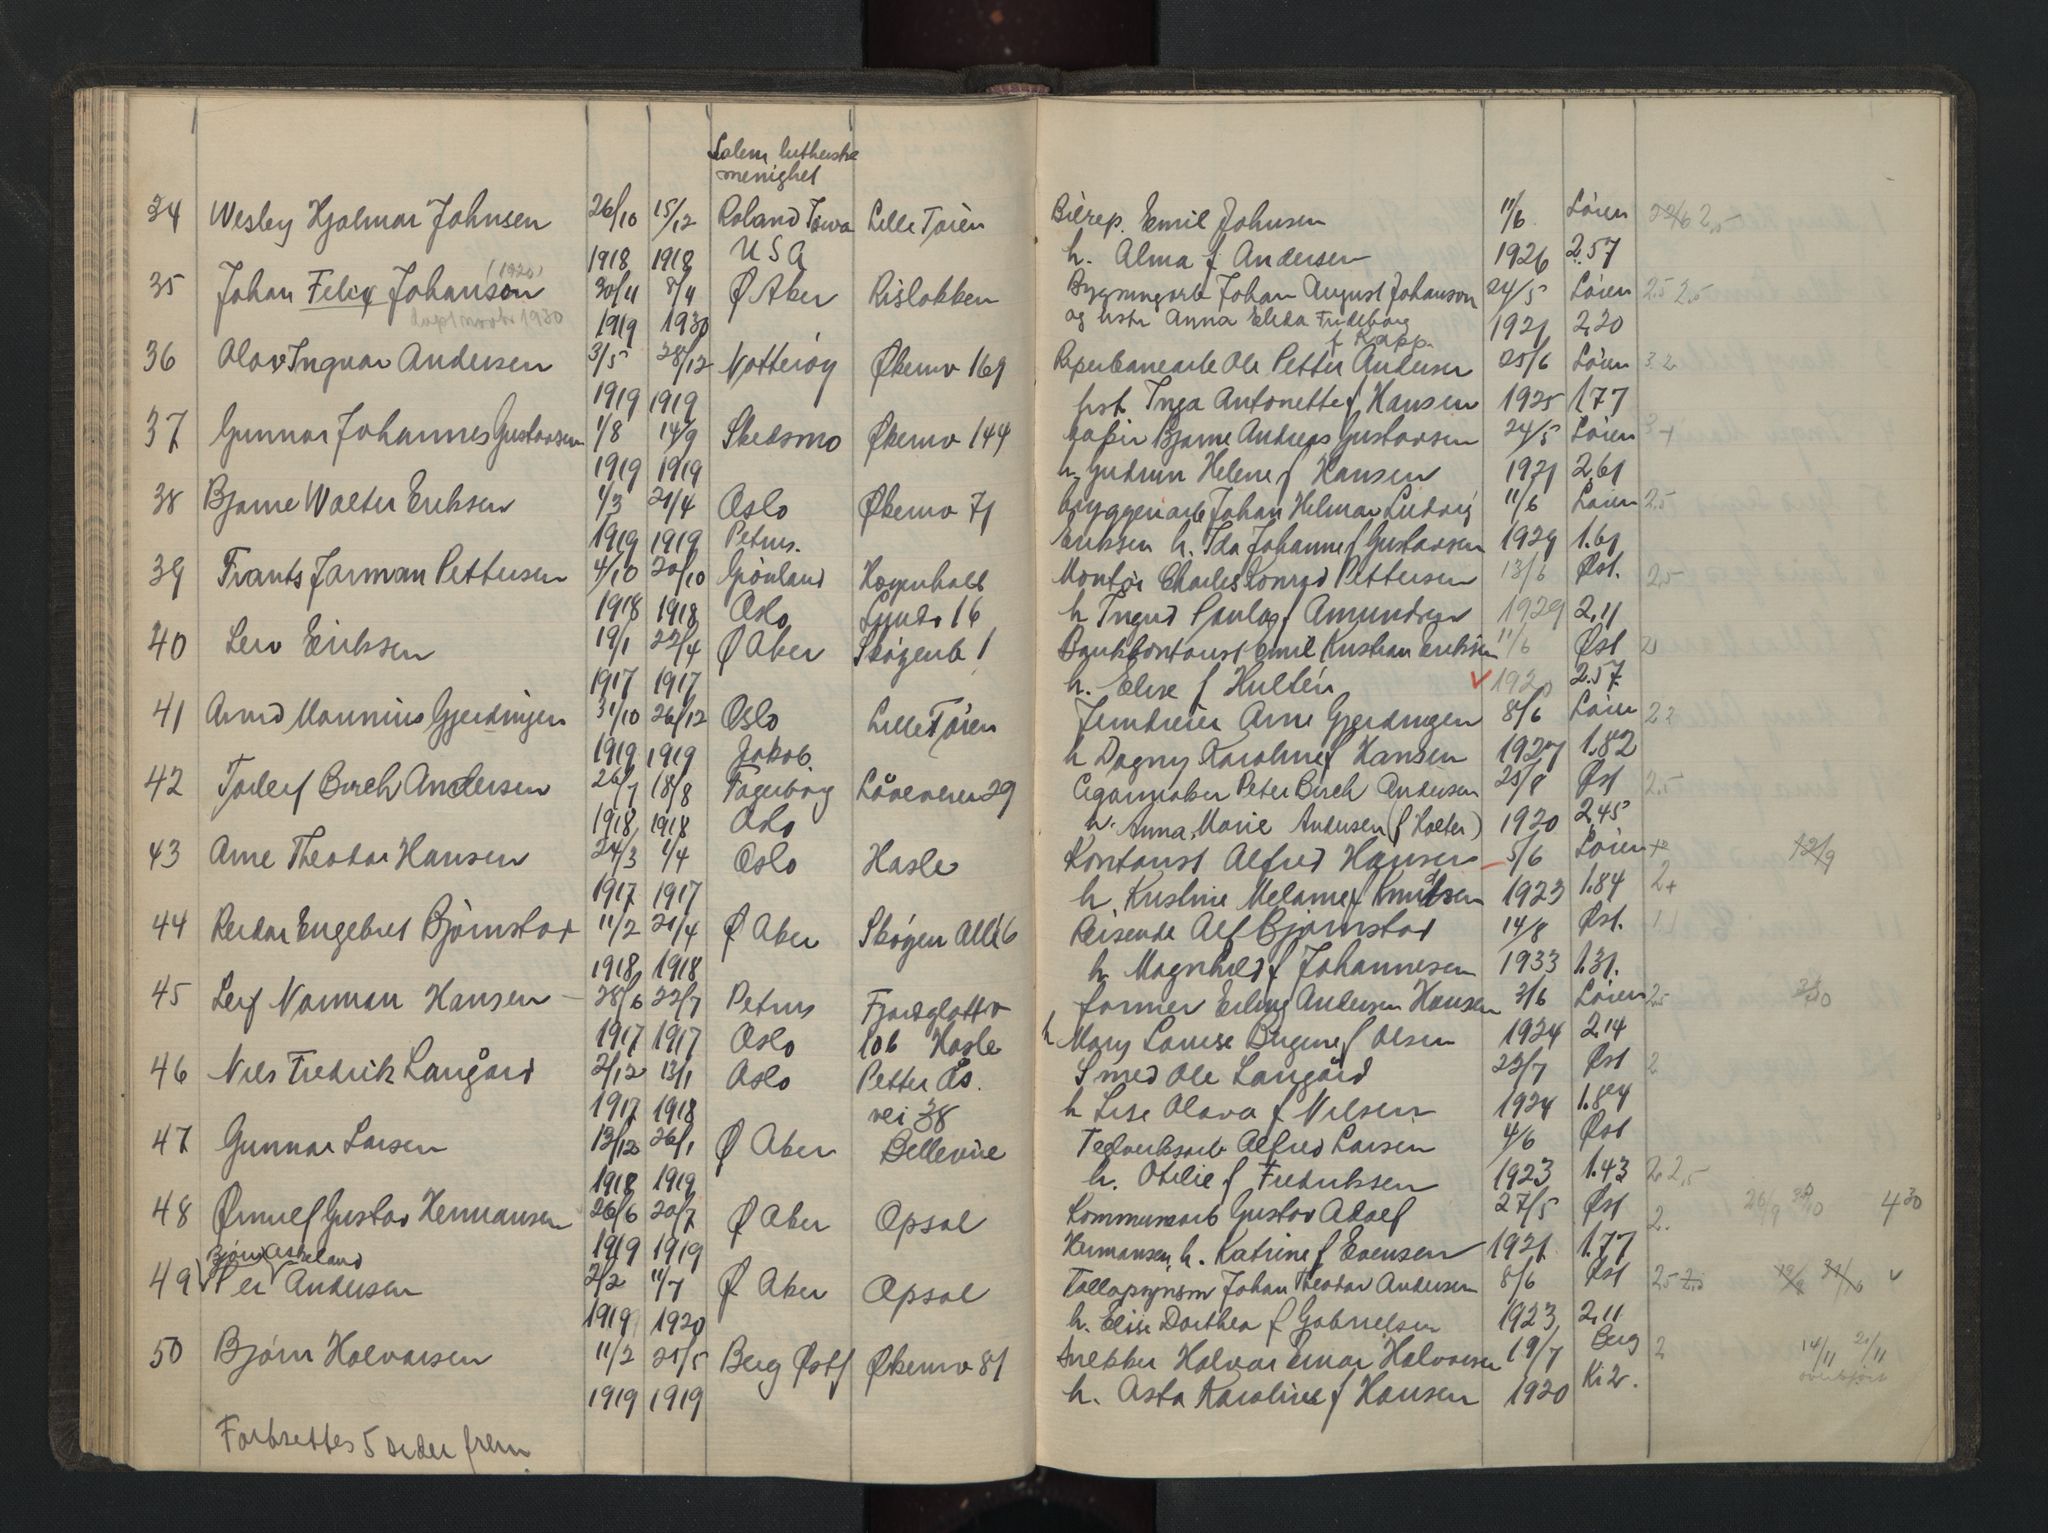 Salem lutherske
menighet
34 Wesley Hjalmar Johnsen 26/10 15/12 Roland Iowa Lille Tøien Bilrep. Emil Johnsen 11/6 Løren 22/6 2,5
1918 1918 USA h. Alma f Andersen 1926 2.57
(1920)
35 Johan Felix Johanson 30/11 8/4 Ø Aker Risløkken Bygningsarb Johan August Johanson 24/5 Løren 2.5 2.5
1930
1919 1930 og ustr Anna Elida Frideborg 1921 2,20
f Kapp.
36 Olav Ingvar Andersen 3/5 28/12 Nøtterøy Økernv 169 Reperbanearb Ole Petter Andersen 25/6 Løren 3.2
1919 1919 hst. Inga Antonette f Hansen 1925 1,77
37 Gunnar Johannes Gustavsen 1/8 14/9 Skedsmo Økernv 144 Gaffør Bjarne Andreas Gustavsen 24/5 Løren
1919 1919 h Gudrun Helene f Hansen 1921 2,61
38 Bjarne Walter Eriksen 1/3 21/4 Oslo Økernv 71 bryggeriarb Johan Hilmar Ludvig 11/6 Løren 2.5
1919 1919 Petrus. Eriksen h. Ida Johanne f Gustavsen 1929 1.61
39 Frants Jarman Pettersen 4/10 20/10 Grönland Montør Charles Konrad Pettersen 13/6 Øst. 2,5
1918 1918 Oslo 16 h Ingrid Paula f Amundsen 1929 2,11
40 Leiv Eriksen 19/1 22/4 Ø Aker Skøyenb 1 Bankkontorist Emil Kristian Eriksen 11/6 Øst
1917 1917 h. Elise f Hultén 1920 2.57
41 Arvid Mannius Gjerdingen 31/10 26/12 Oslo Lille Tøien Jerndreier Arne Gjerdingen 8/6 Løren 2 2
1919 1919 Jakob. h Dagny Karoline f Hansen 1927 1.82
42 Tjodlef Birch Andersen 26/7 18/8 Fagerborg 29 Cigarmaker Peter Birch Andersen 25/8 Øst 2.5
1918 1918 Oslo h. Anna Marie Andersen (f Holter) 1920 2,45
43 Arne Theodor Hansen 24/3 1/4 Oslo Hasle Kontorist Alfred Hansen 5/6 Løren 12/9
1917 1917 h Kristine Melanie f Knudsen 1923 1.84 2+
44 Reidar Engebret Bjørnstad 11/2 21/4 Ø Aker Skøyen Allé 6 Reisende Alf Bjørnstad 14/8 Øst.
1918 1918 h Magnhild f Johannesen 1933 1.31.
45 Leif Norman Hansen 28/6 22/7 Petrus Fjordgløttv former Erling Andersen Hansen 3/6 Løren 2.5
1917 1917 Oslo 10b Hasle h Mary Louise Birgine f Olsen 1924 2,14
46 Nils Fredrik Langård 2/12 13/1 Oslo Petter Ås. Smed Ole Langård 23/7 Øst 2
1917 1918 vei 38 h Lise Olava f Nilsen 1924 1.84
47 Gunnar Larsen 13/12 26/1 Ø Aker Bellevue Teglverksarb Alfred Larsen 4/6 Øst
1918 1919 h. Otilie f Fredriksen 1923 1.43 2. 2,5
48 Ørnulf Gustav Hermansen 26/6 20/7 Ø Aker Opsal Kommunearb Gustav Adolf 27/5 Øst 2. 26/9 4 30
1919 1919 Hermansen h. Katrine f Evensen 1921. 1.77
Bjørn Askeland
49 Per Andersen 2/2 11/7 Ø Aker Opsal Tolloppsynsm Johan Theodor Andersen 8/6 Øst 2.5
1919 1920 h. Elise Dorthea f Gabrielsen 1923 2,11
50 Bjørn Halvorsen 11/2 25/5 Berg Østf Økernv 81 Snekker Halvor Einar Halvorsen 19/7 Berg 2 14/11 21/11
1919 1919 h. Asta Karoline f Hansen 1920 Ki 2.
Fortsettes 5 sider frem